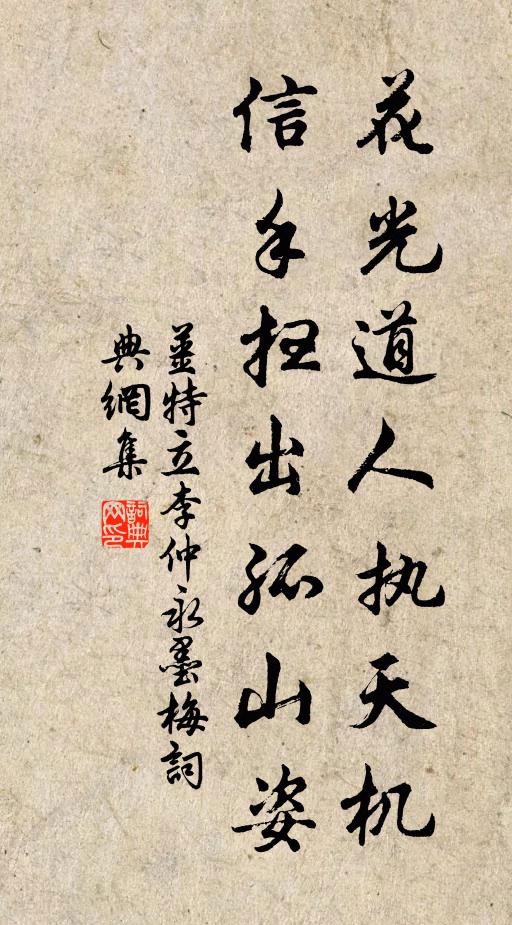 花光道人执天机
信手扫出孤山姿
姜特立李仲永墨梅詞
典網集
詞典
网印